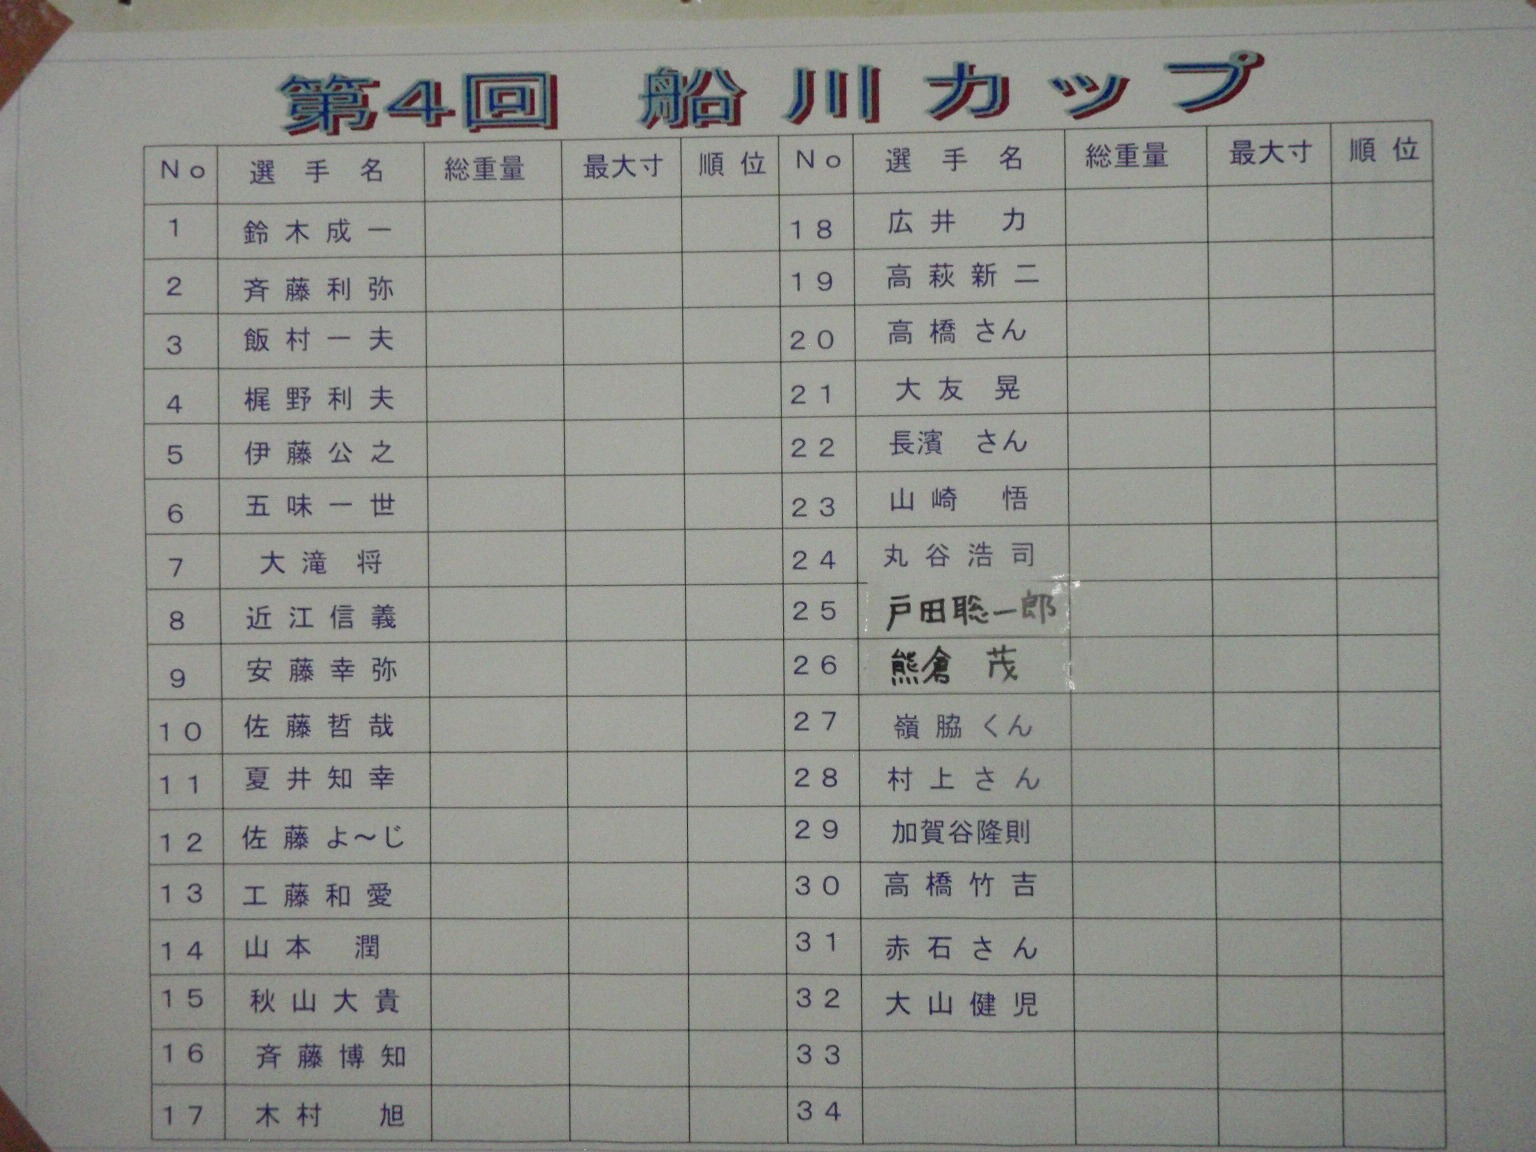 第4回 船川カップ
No 選手名 総重量 最大寸 順位 No 選手名 総重量 最大寸 順位
1 鈴木成一 18 広井 力
2 斉藤利弥 19 高萩新二
3 飯村一夫 20 高橋さん
4 梶野利夫 21 大友 晃
5 伊藤公之 22 長濱 さん
6 五味一世 23 山崎 悟
7 大滝 将 24 丸谷浩司
8 近江信義 25 戸田聡一郎
9 安藤幸弥 26 熊倉 茂
10 佐藤哲哉 27 嶺脇くん
11 夏井知幸 28 村上さん
12 佐藤よ～じ 29 加賀谷隆則
13 工藤和愛 30 高橋竹吉
14 山本 潤 31 赤石さん
15 秋山大貴 32 大山健児
16 斉藤博知 33
17 木村 旭 34